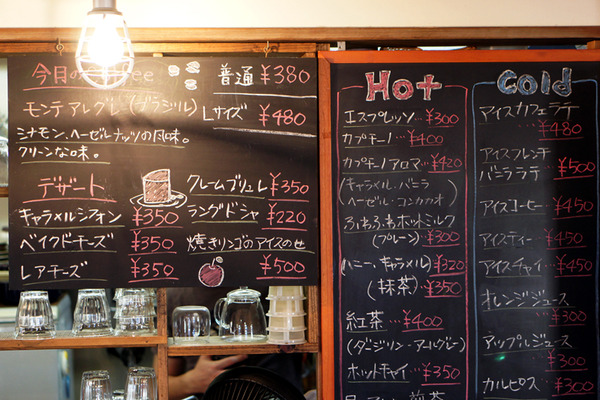 今日のCoffee
普通 ¥380
モンテアレグレ(ブラジル)
Lサイズ ¥480
シナモン、ヘーゼルナッツの風味。
クリーンな味。
デザート
キャラメルシフォン ¥350
ベイクドチーズ ¥350
レアチーズ ¥350
クレームブリュレ ¥350
ラングドシャ ¥220
焼きリンゴのアイスのせ
¥500
Hot
エスプレッソ…¥300
カプチーノ…¥400
カプチーノアロマ…¥420
(キャラメル・バニラ
ヘーゼル・コンカカオ)
ふわふわホットミルク
(プレーン) ¥300
(ハニー、キャラメル) ¥320
(抹茶)…¥350
紅茶…¥400
(ダージリン・アールグレー)
ホットチャイ…¥350
Cold
アイスカフェラテ
…¥480
アイスフレンチ
バニララテ ¥500
アイスコーヒー…¥450
アイスティー…¥450
アイスチャイ…¥450
オレンジジュース
…¥300
アップルジュース
¥300
カルピス…¥300